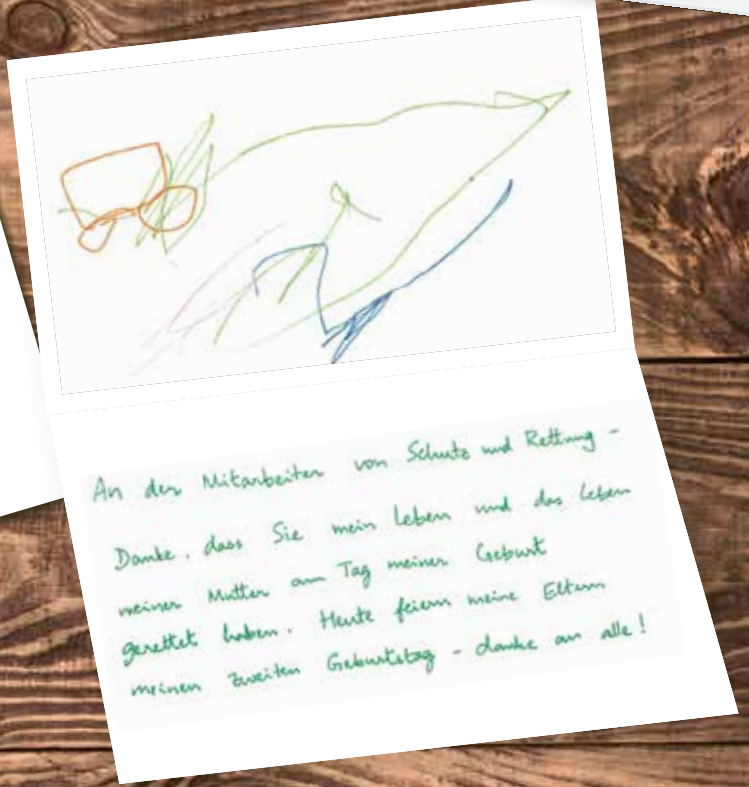 An der Mitarbeiter von Schutz und Rettung -
Danke, dass Sie mein Leben und das Leben
meiner Mutter am Tag meiner Geburt
gerettet haben. Heute feiern meine Eltern
meinen zweiten Geburtstag - danke an alle!